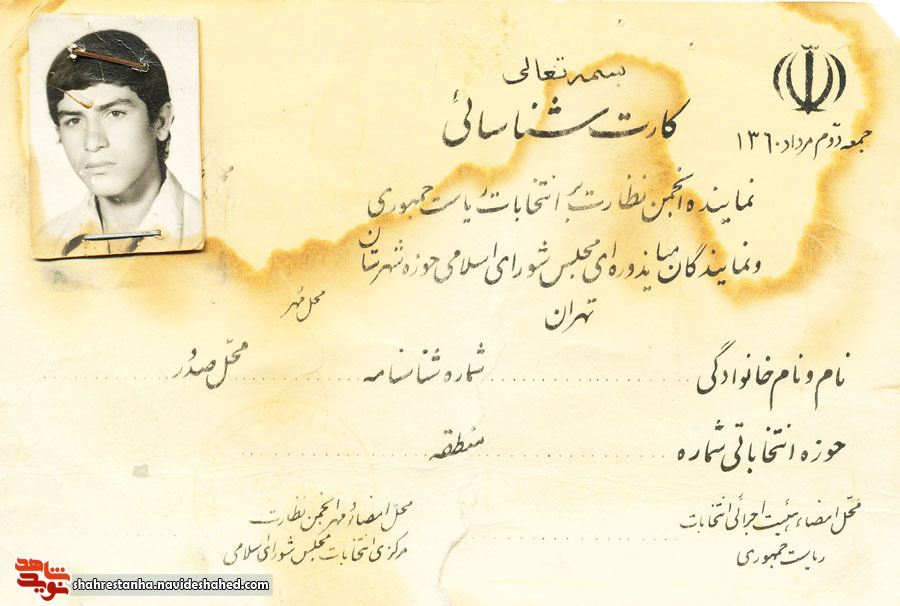 بسمه تعالی
کارت شناسائی
جمعه دوّم مرداد ۱۳۶۰
نماینده انجمن نظارت بر انتخابات ریاست جمهوری
و نمایندگان میاندوره‌ای مجلس شورای اسلامی حوزه شهرستان
تهران
محل مهر
نام و نام خانوادگی ........ شماره شناسنامه ........ محلّ صدور ........
حوزه انتخاباتی شماره ........ منطقه ........
محلّ امضاء هیئت اجرائی انتخابات
ریاست جمهوری
محلّ امضاء و مهر انجمن نظارت
مرکزی انتخابات مجلس شورای اسلامی
نوید شاهد
shahrestanha.navideshahed.com